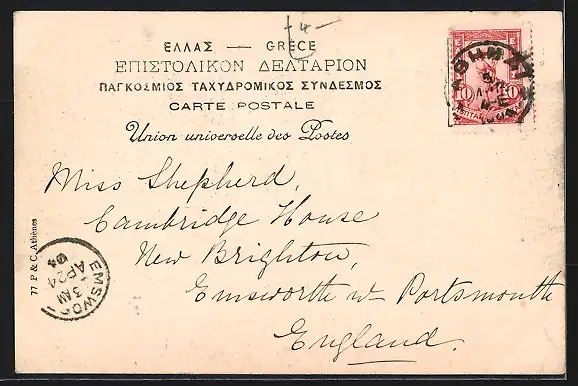 - 4 -
ΕΛΛΑΣ — GRÈCE
ΕΠΙΣΤΟΛΙΚΟΝ ΔΕΛΤΑΡΙΟΝ
ΠΑΓΚΟΣΜΙΟΣ ΤΑΧΥΔΡΟΜΙΚΟΣ ΣΥΝΔΕΣΜΟΣ
CARTE POSTALE
Union universelle des Postes
Miss Shepherd,
Cambridge House
New Brighton,
Emsworth Portsmouth
England.
77 P & C Athènes
EMSWO
3 AM
AP 24
04
ΑΘΗΝΑΙ
10